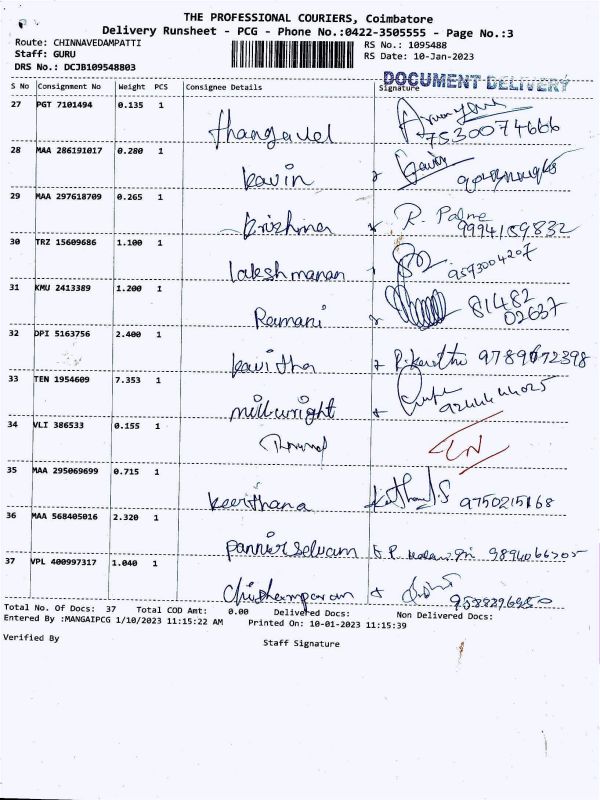 THE PROFESSIONAL COURIERS, Coimbatore
Delivery Runsheet - PCG - Phone No.:0422-3505555 - Page No.:3
Route: CHINNAVEDAMPATTI RS No.: 1095488
Staff: GURU RS Date: 10-Jan-2023
DRS No.: DCJB109548803
DOCUMENT DELIVERY
S No Consignment No Weight PCS Consignee Details Signature
27 PGT 7101494 0.135 1
thangavel 7530074666
28 MAA 286191017 0.280 1
kavin Kavin
29 MAA 297618709 0.265 1
krishna R. Palme 9994189832
30 TRZ 15609686 1.100 1
lakshmanan 9573004207
31 KMU 2413389 1.200 1
Ramani 81482
02637
32 DPI 5163756 2.400 1
kavitha P. Keerthi 9789672398
33 TEN 1954609 7.353 1
millwright
34 VLI 386533 0.155 1
35 MAA 295069699 0.715 1
keerthana 9750215168
36 MAA 568405016 2.320 1
pannir selvam
37 VPL 400997317 1.040 1
Chidhamparam
Total No. Of Docs: 37 Total COD Amt: 0.00 Delivered Docs: Non Delivered Docs:
Entered By :MANGAIPCG 1/10/2023 11:15:22 AM Printed On: 10-01-2023 11:15:39
Verified By Staff Signature